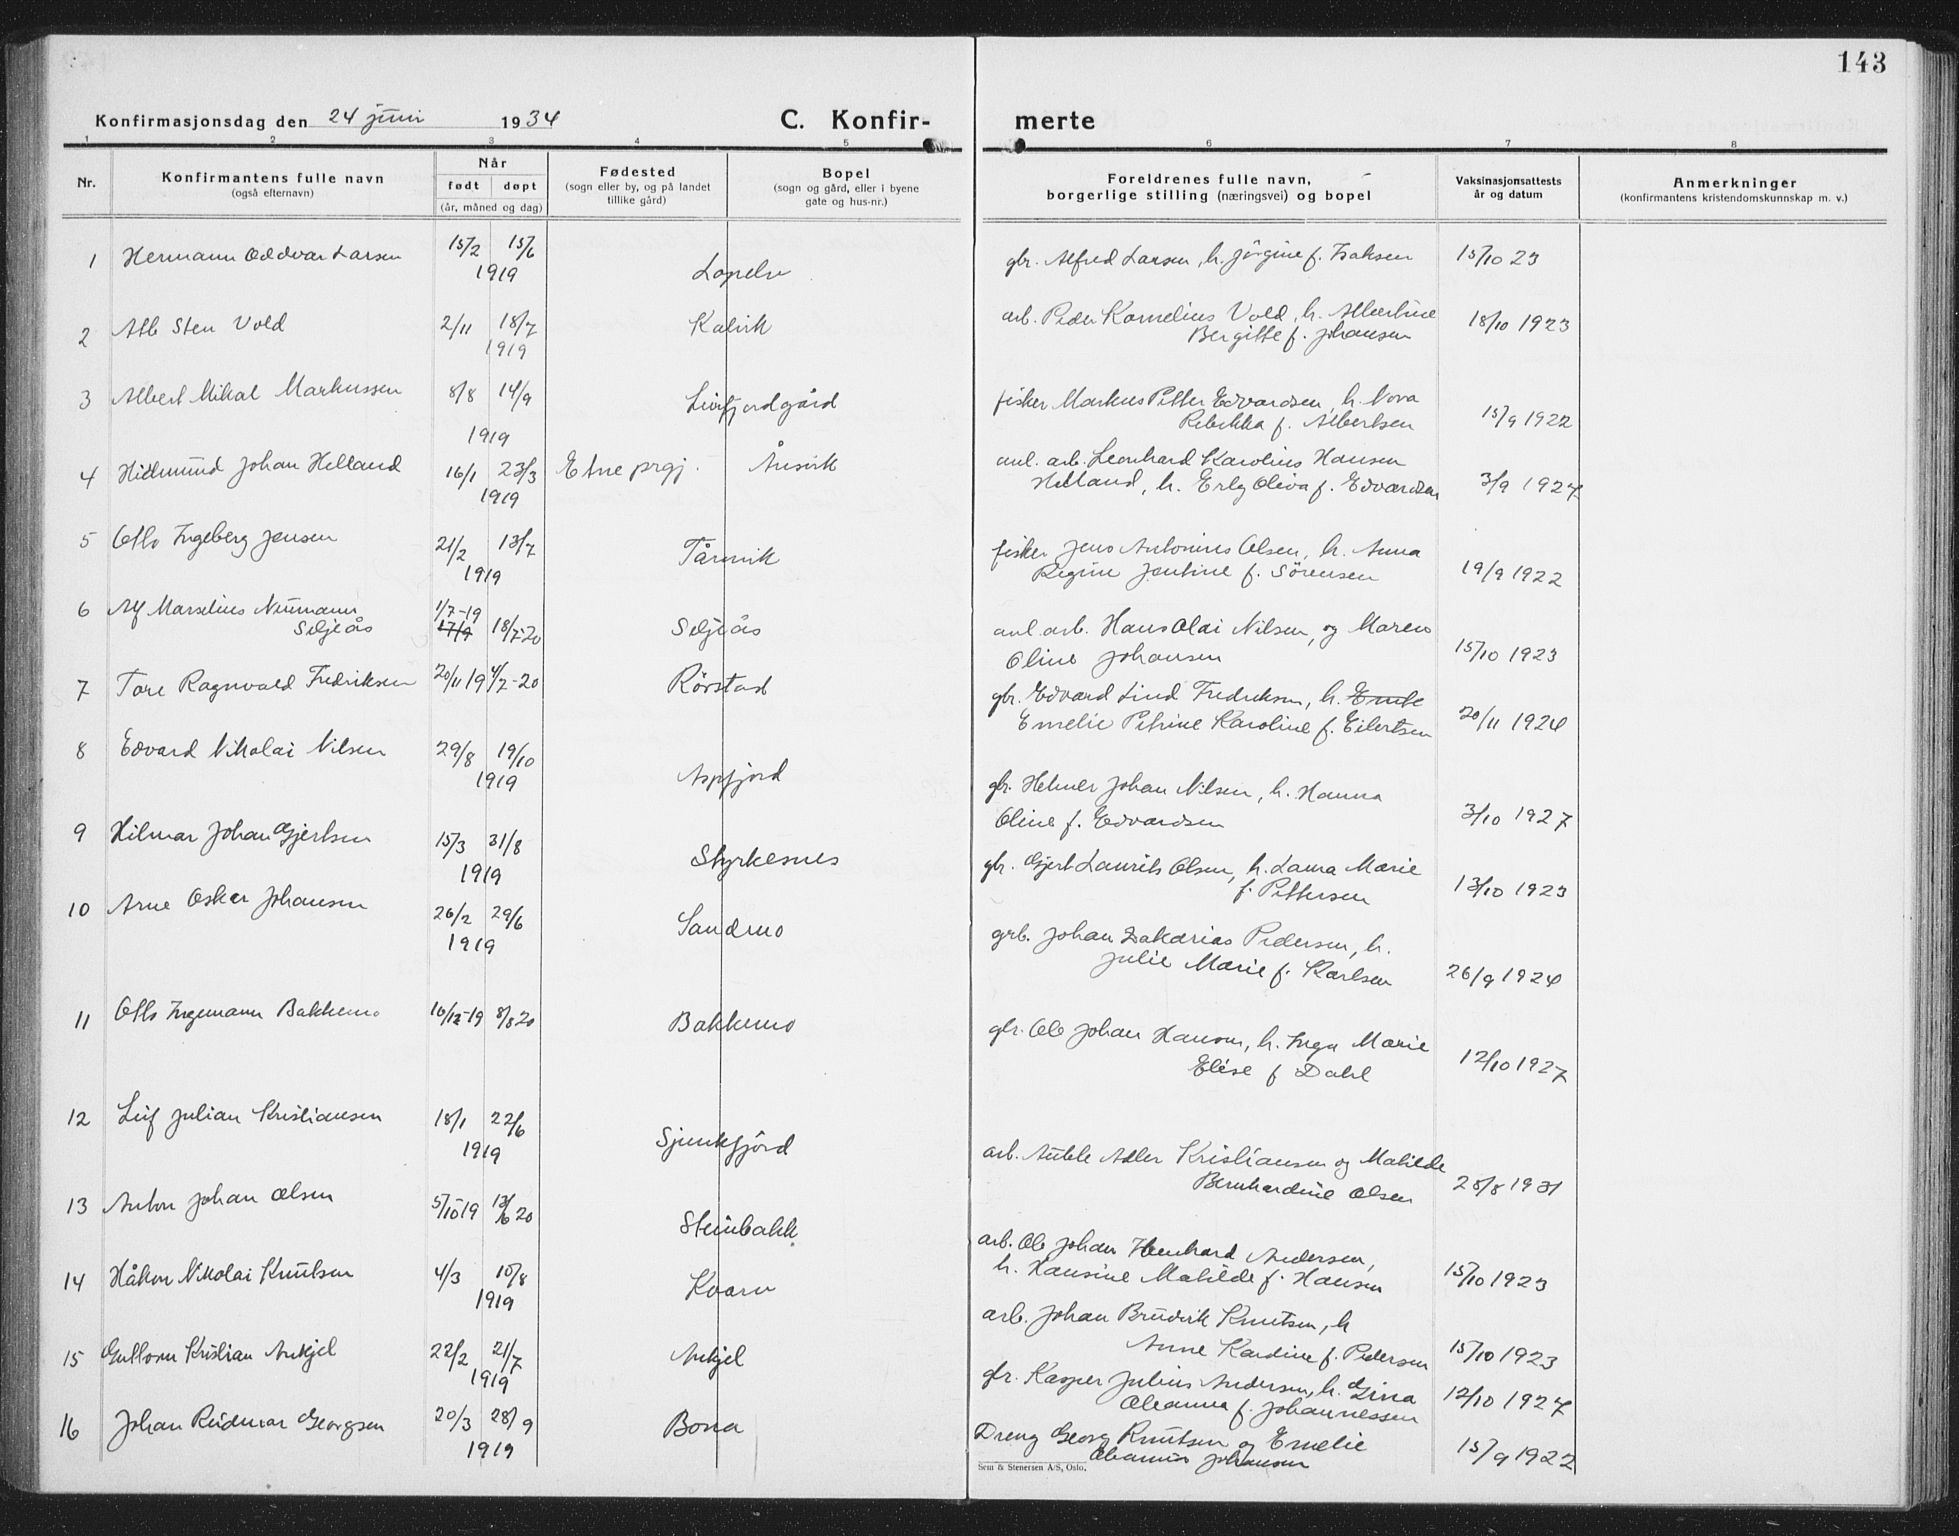 143
Konfirmasjonsdag den 24 juni 1934 C. Konfir- merte
1 2 3 4 5 6 7 8
Nr. Konfirmantens fulle navn (også efternavn) Når født døpt (år, måned og dag) Fødested (sogn eller by, og på landet tillike gård) Bopel (sogn og gård, eller i byene gate og hus-nr.) Foreldrenes fulle navn, borgerlige stilling (næringsvei) og bopel Vaksinasjonsattests år og datum Anmerkninger (konfirmantens kristendomskunnskap m. v.)
1 Hermann Oddvar Larsen 15/2 15/6 1919 Lapelv gbr. Alfred Larsen, h. Jörgine f. Isaksen 15/10 23
2 Alb Sten Vold 2/11 18/7 1919 Kalvik arb. Peder Kornelius Vold, h. Albertine
Bergitte f. Johansen 18/10 1923
3 Albert Mikal Markussen 8/8 14/9 1919 Leirfjordgård fisker Markus Petter Edvardsen, h. Nova
Rebekka f. Albertsen 15/9 1922
4 Hildmund Johan Helland 16/1 23/3 1919 Etne prgj. Ånsvik anl. arb. Leonhard Karolius Hansen
Helland, h. Erly Oliva f. Edvardsen 3/9 1924
5 Otto Ingeberg Jensen 21/2 13/7 1919 Tårnvik fisker Jens Antonius Olsen, h. Anna
Regine Jentine f. Sörensen 19/9 1922
6 Alf Marselius Numann
Seljeås 1/7-19 17/9 18/7-20 Seljeås anl. arb. Hans Olai Nilsen, og Maren
Oline Johansen 15/10 1923
7 Tore Ragnvald Fredriksen 20/11 19 4/7-20 Rörstad gbr. Edvard Lind Fredriksen, h. Emile
Emelie Petrine Karoline f. Eilertsen 20/11 1924
8 Edvard Nikolai Nilsen 29/8 19/10 1919 Aspfjord gbr. Helmer Johan Nilsen, h. Hanna
Oline f. Edvardsen 3/10 1927
9 Hilmar Johan Gjertsen 15/3 31/8 1919 Styrkesnes gbr. Gjert Laurits Olsen, h. Laura Marie
f. Pettersen 13/10 1923
10 Arne Oskar Johansen 26/2 29/6 1919 Sandmo grb. Johan Zakarias Pedersen, h.
Julie Marie f. Karlsen 26/9 1924
11 Otto Ingemann Bakkemo 16/12-19 8/8 20 Bakkemo gbr. Ole Johan Hanson, h. Inga Marie
Elise f Dahl 12/10 1927
12 Leif Julian Kristiansen 18/1 22/6 1919 Sjunkfjörd arb. Adler Kristiansen og Matilde
Bernhardine Olsen 28/8 1931
13 Anton Johan Olsen 5/10 19 13/6 20 Steinbakk arb. Ole Johan Henhard Andersen,
h. Hansine Matilde f. Hansen 15/10 1923
14 Håkon Nikolai Knutsen 4/3 10/8 1919 Kvarv arb. Johan Brudvik Knutsen, h
Anne Kardine f. Pedersen 15/10 1923
15 Guttorm Kristian Ankjel 22/2 21/7 1919 Ankjel gbr. Kasper Julius Andersen, h. Gina
Oleanna f. Johannessen 12/10 1924
16 Johan Reidmar Georgsen 20/3 28/9 1919 Bona Dreng Georg Knutsen og Emelie
Oleanna Johansen 15/9 1922
Sem & Stenersen A/S, Oslo.